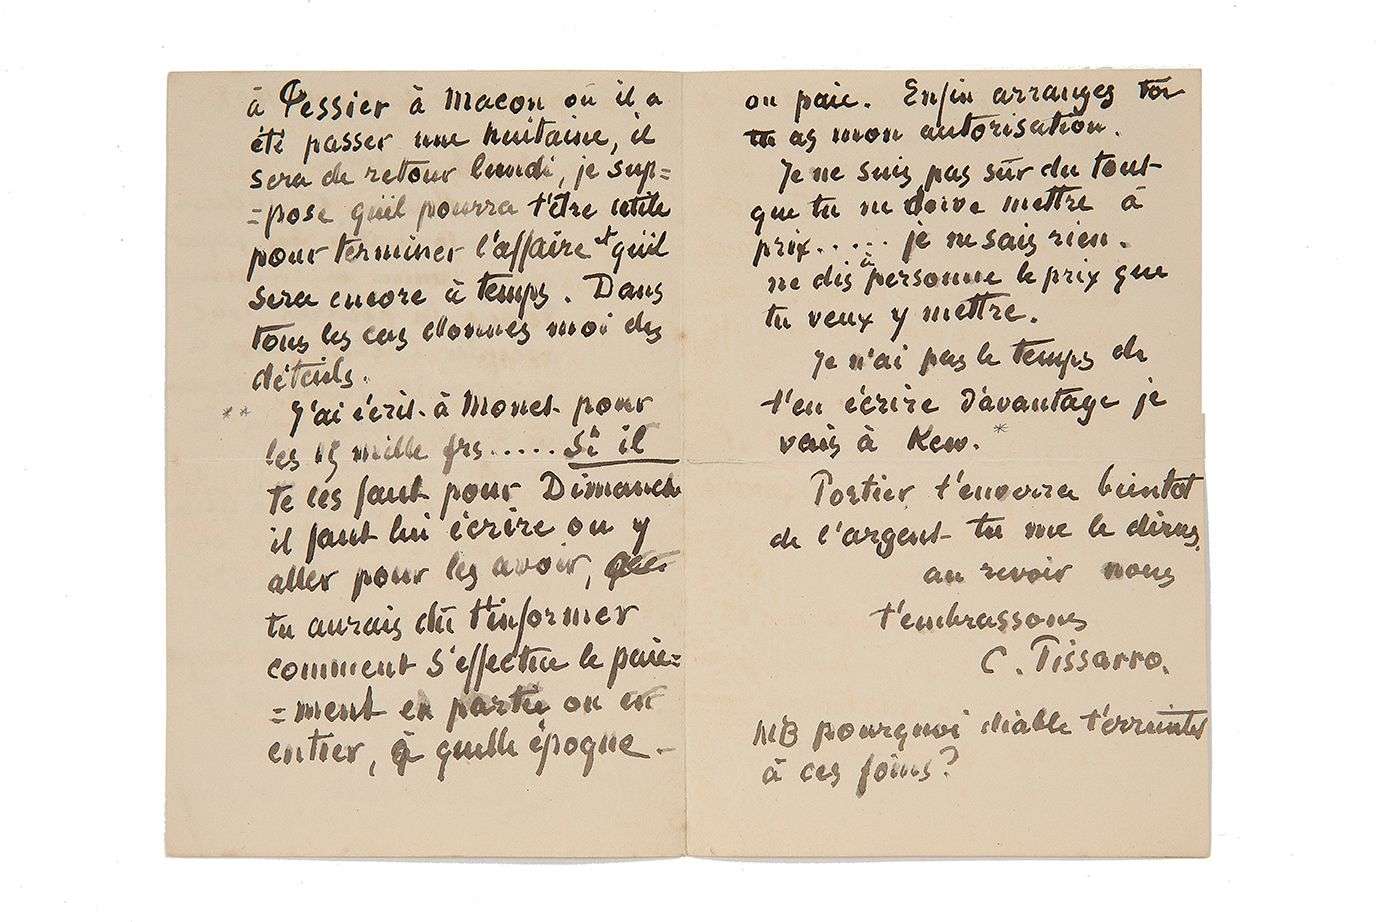 à Tessier à Macon où il a
été passer une huitaine, il
sera de retour lundi, je sup=
=pose qu'il pourra t'être utile
pour terminer l'affaire et qu'il
sera encore à temps. Dans
tous les cas donnes moi des
détails.
** J'ai écrit à Monet pour
les 15 mille frs ..... Si il
te les faut pour Dimanche
il faut lui écrire ou y
aller pour les avoir,
tu aurais dû t'informer
comment s'effectue le paie=
=ment en partie ou en
entier, à quelle époque -
on paie. Enfin arranges toi
tu as mon autorisation.
Je ne suis pas sûr du tout
que tu ne doive mettre à
prix..... je ne sais rien.
ne dis à personne le prix que
tu veux y mettre.
Je n'ai pas le temps de
t'en écrire d'avantage je
vais à Kew. *
Portier t'enverra bientot
de l'argent tu me le diras,
au revoir nous
t'embrassons
C. Pissarro.
NB pourquoi diable t'erreintes
à ces foins?